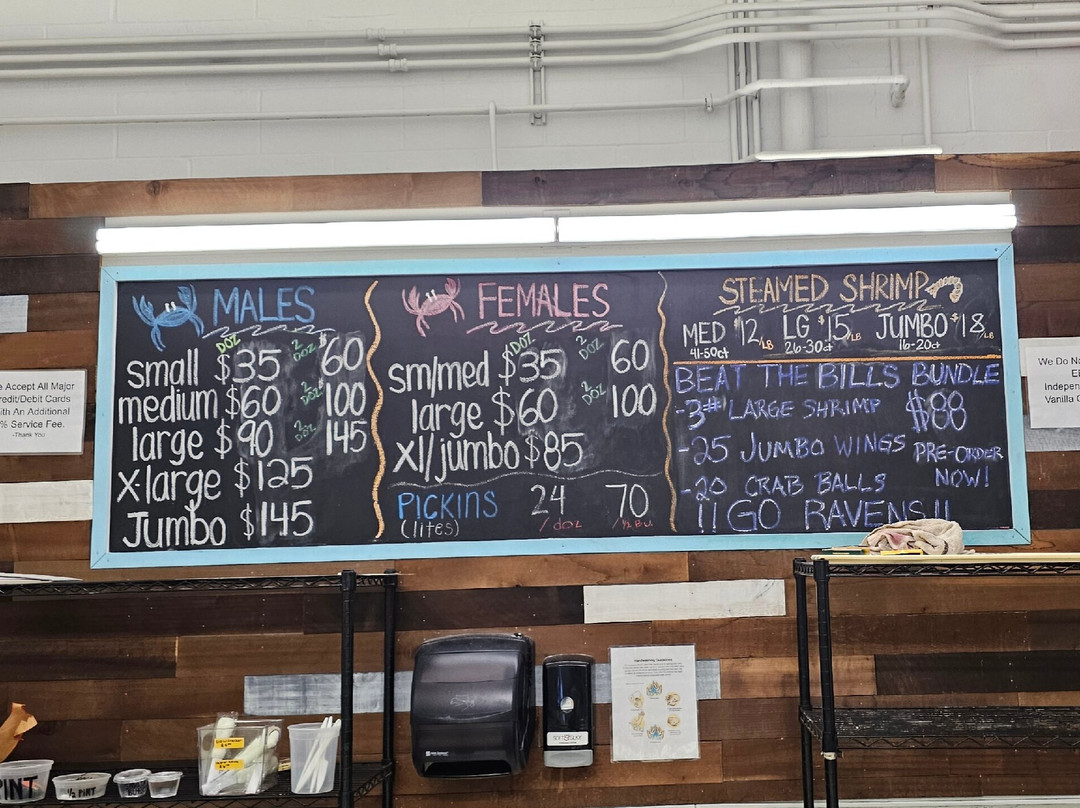 MALES
small $35 DOZ 2 DOZ $60
medium $60 2 DOZ 100
large $90 2 DOZ 145
xlarge $125
Jumbo $145
FEMALES
sm/med $35 1DOZ 2 DOZ 60
large $60 2 DOZ 100
xl/jumbo $85
PICKINS 24 70
(lites) /doz /½ Bu
STEAMED SHRIMP
MED $12/LB LG $15/LB JUMBO $18/LB
41-50ct 26-30ct 16-20ct
BEAT THE BILLS BUNDLE
-3# LARGE SHRIMP $88
-25 JUMBO WINGS PRE-ORDER
-20 CRAB BALLS NOW!
!!GO RAVENS!!
Accept All Major
Credit/Debit Cards
With An Additional
% Service Fee.
-Thank You
We Do No
Indepen
Vanilla
PINT
½ PINT